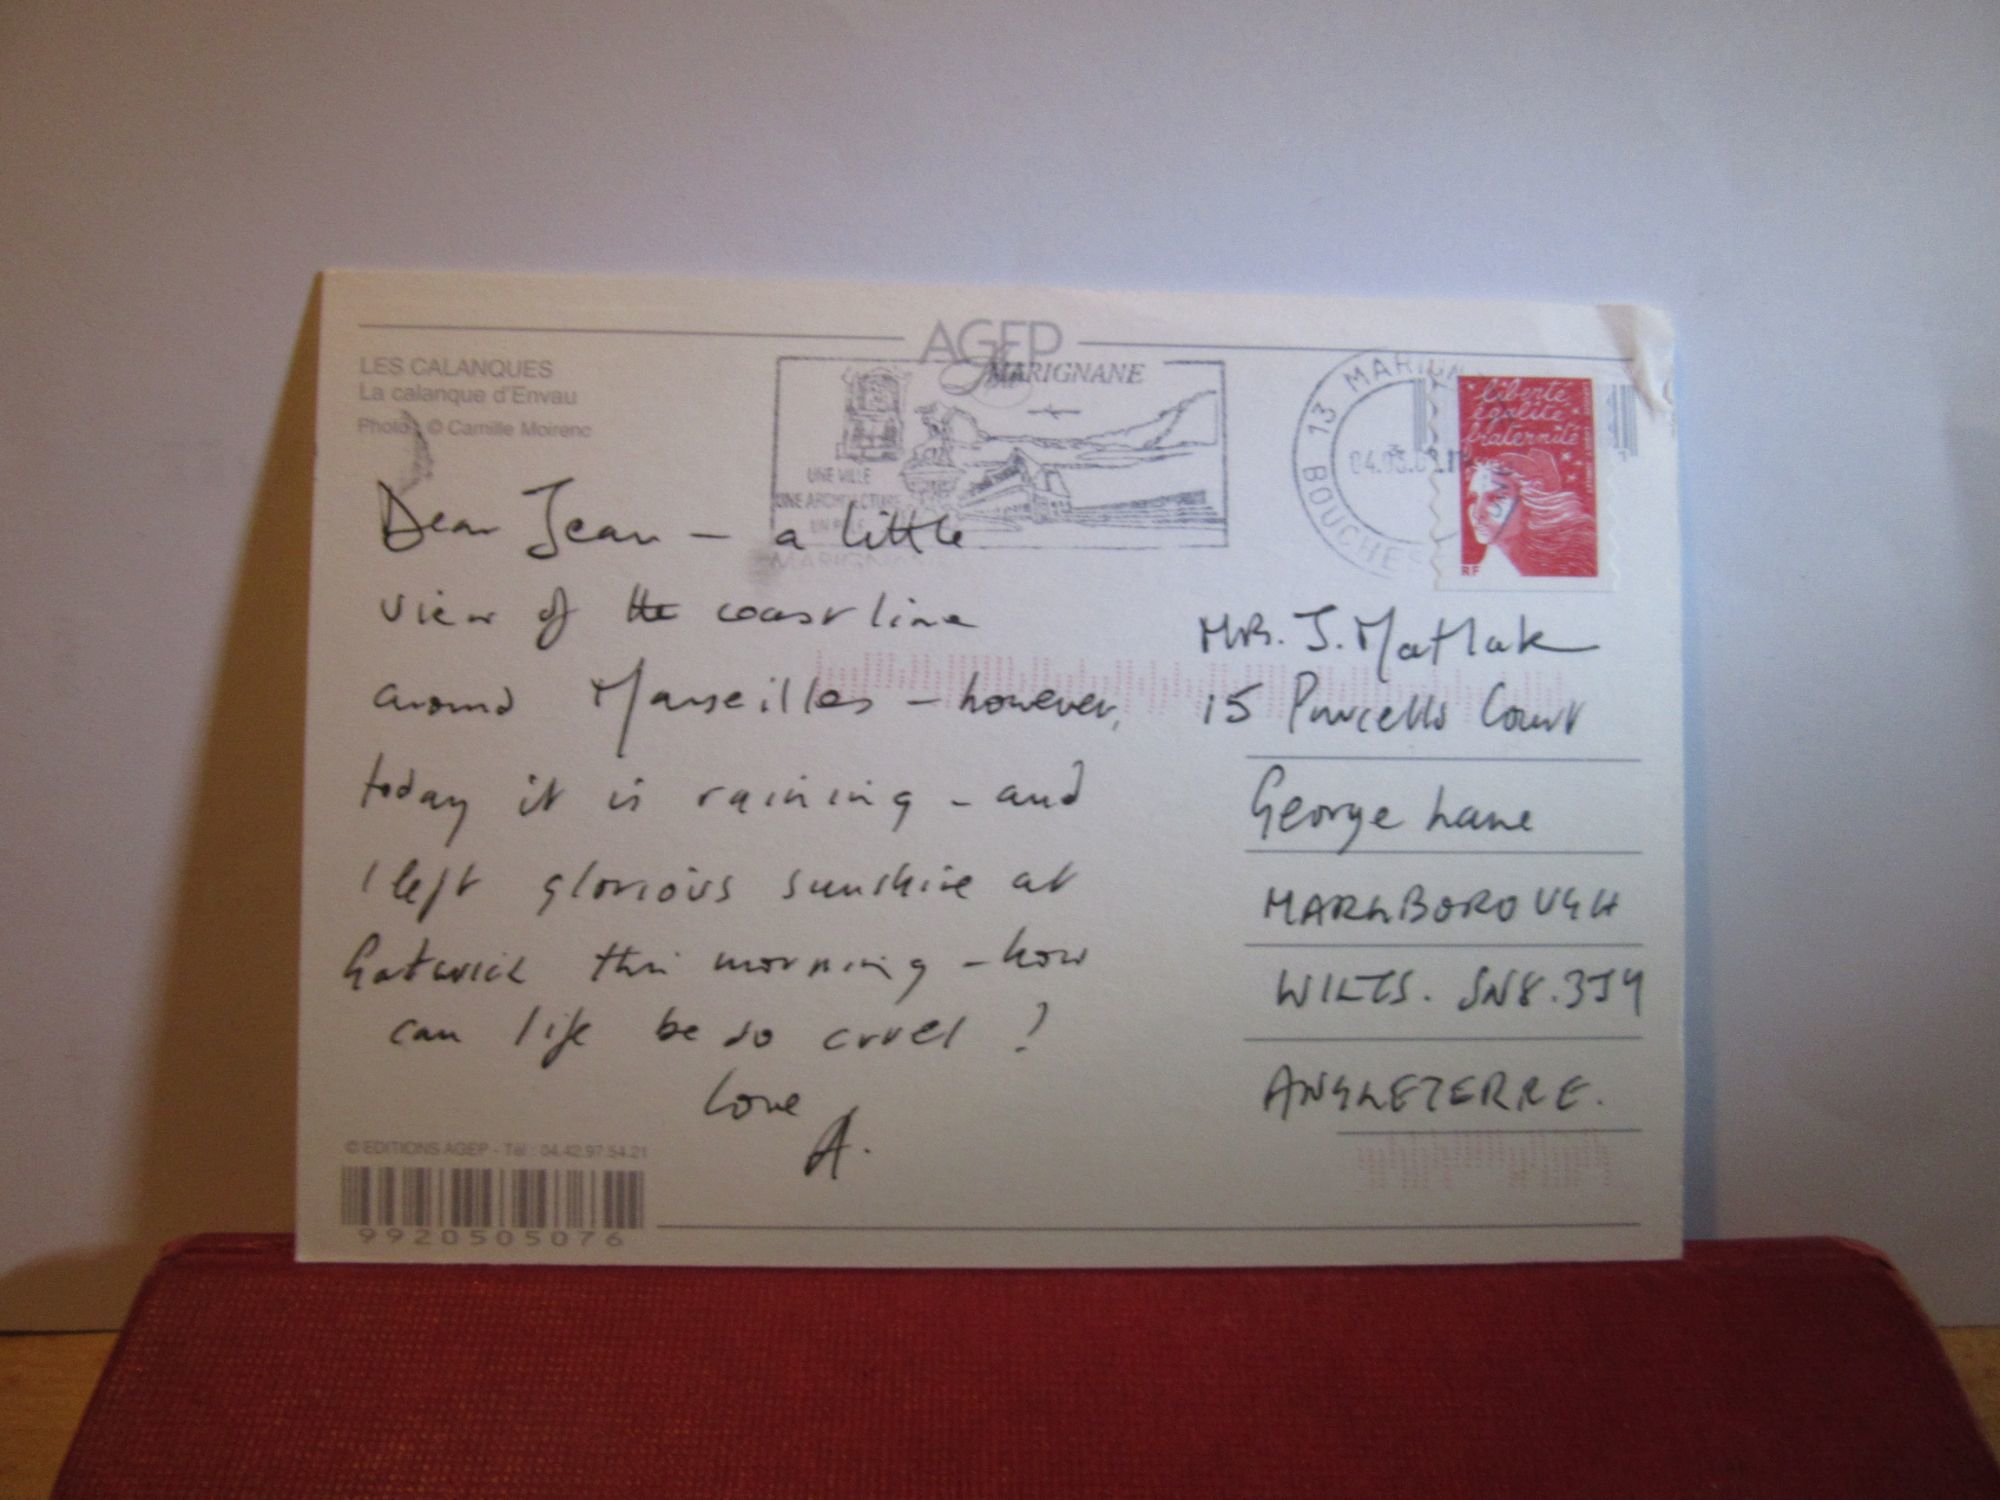 AGEP
LES CALANQUES
La calanque d'Envau
Photo : © Camille Moirenc
MARIGNANE
UNE VILLE
UNE ARCHITECTURE
UN PÔLE
MARIGNANE
13 MARIGNANE
04.03.02
BOUCHES
liberté
égalité
fraternité
RF
Dear Jean - a little
view of the coast line
around Marseilles - however,
today it is raining - and
I left glorious sunshine at
Gatwick this morning - how
can life be so cruel ?
Love
A.
MRS. J. Matlak
15 Purcells Court
George Lane
MARLBOROUGH
WILTS. SN8.3J4
ANGLETERRE.
© EDITIONS AGEP - Tél : 04.42.97.54.21
9920505076